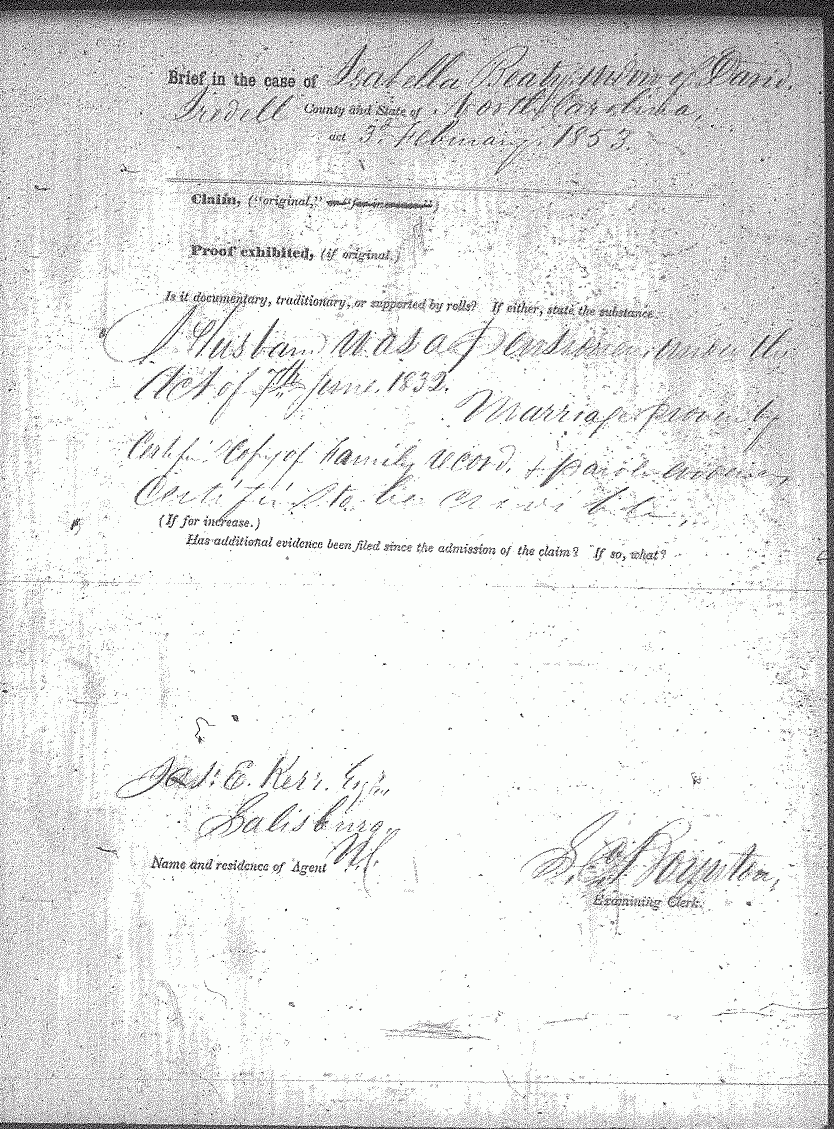 Brief in the case of Isabella Beaty, widow of David.
Iredell County and State of North Carolina,
act 3d. February. 1853.
Claim, ("original," or "for increase")
Proof exhibited, (if original.)
Is it documentary, traditionary, or supported by rolls? If either, state the substance.
Husband was a Pensioner under the
Act of 7th June. 1832.
Marriage proven by
Certifi Copy of Family record. + parole evidence,
Certified to be credible.
(If for increase.)
Has additional evidence been filed since the admission of the claim? If so, what?
E. Kerr. Esqr.
Salisbury
N.C.
Name and residence of Agent
Boynton,
Examining Clerk.